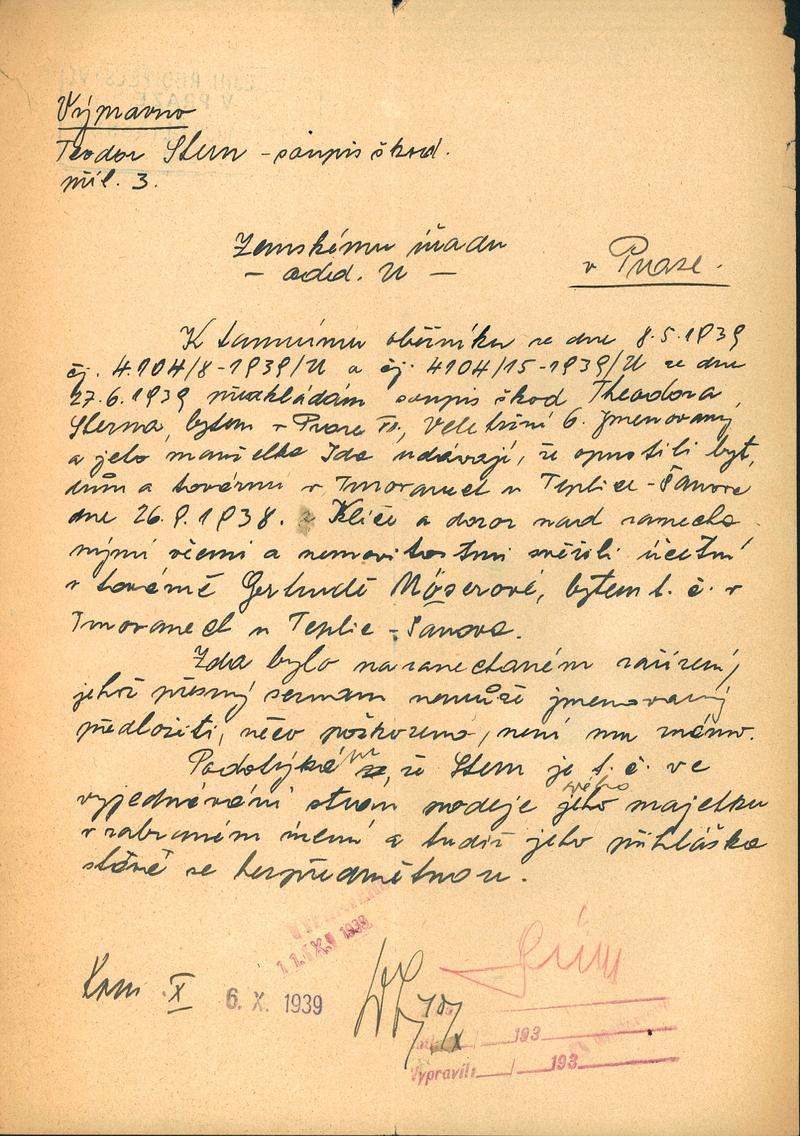 Výpravno
Teodor Stern - soupis škod.
příl. 3.
Zemskému úřadu
- odd. II -
v Praze.
K tamnímu oběžníku ze dne 8.5.1939
čj. 4.104/8-1939/II a čj. 4104/15-1939/II ze dne
27.6.1939 předkládám soupis škod Theodora
Sterna, bytem v Praze VII., Veletržní 6. Jmenovaný
a jeho manželka Ida udávají, že opustili byt,
dům a továrnu v Trnovanech u Teplic-Šanova
dne 26.9.1938. Klíče a dozor nad zanecha
nými věcmi a nemovitostmi svěřili účetní
v továrně Gertrudě Móserové, bytem t. č. v
Trnovanech u Teplic-Šanova.
Zda bylo na zanechaném zařízení,
jehož přesný seznam nemůže jmenovaný
předložiti, něco poškozeno, není mu známo.
Podotýká se, že Stern je t. č. ve
svého
vyjednávání stran prodeje jeho majetku
v zabraném území a tudíž jeho přihláška
stává se bezpředmětnou.
Krim X
6. X. 1939
11. X. 1939
193
Vypravil: / 193